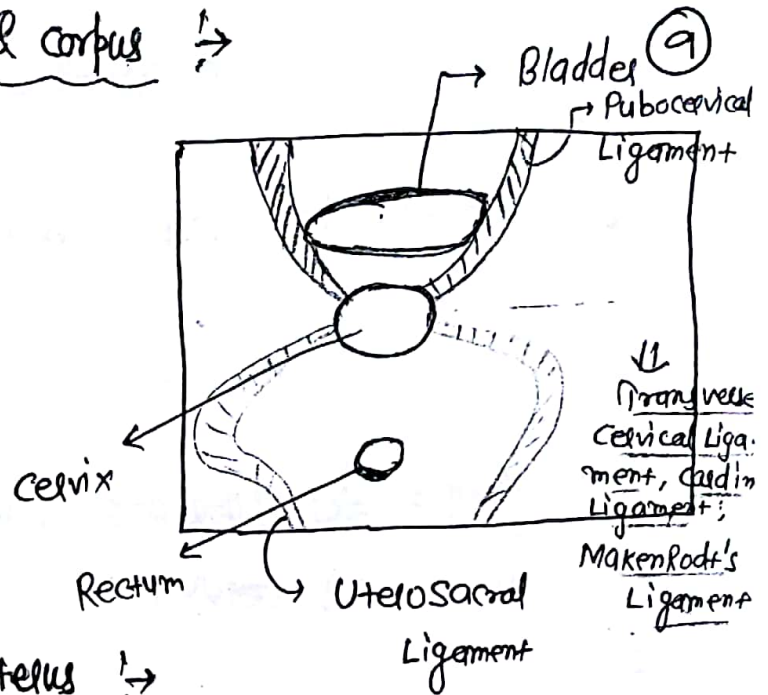 & corpus :→
9
Bladder
Pubocervical
Ligament
Transverse
Cervical Liga-
ment, Cardin
Ligament;
MakenRodt's
Ligament
Cervix
Rectum
Uterosacral
Ligament
terus :→